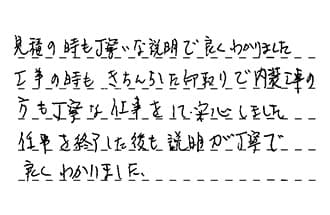 見積の時も丁寧いな説明で良くわかりました
工事の時も きちんとした 段取りで内装工事の
方も丁寧な仕事をして安心しました
仕事を終了した後も説明が丁寧で
良くわかりました、